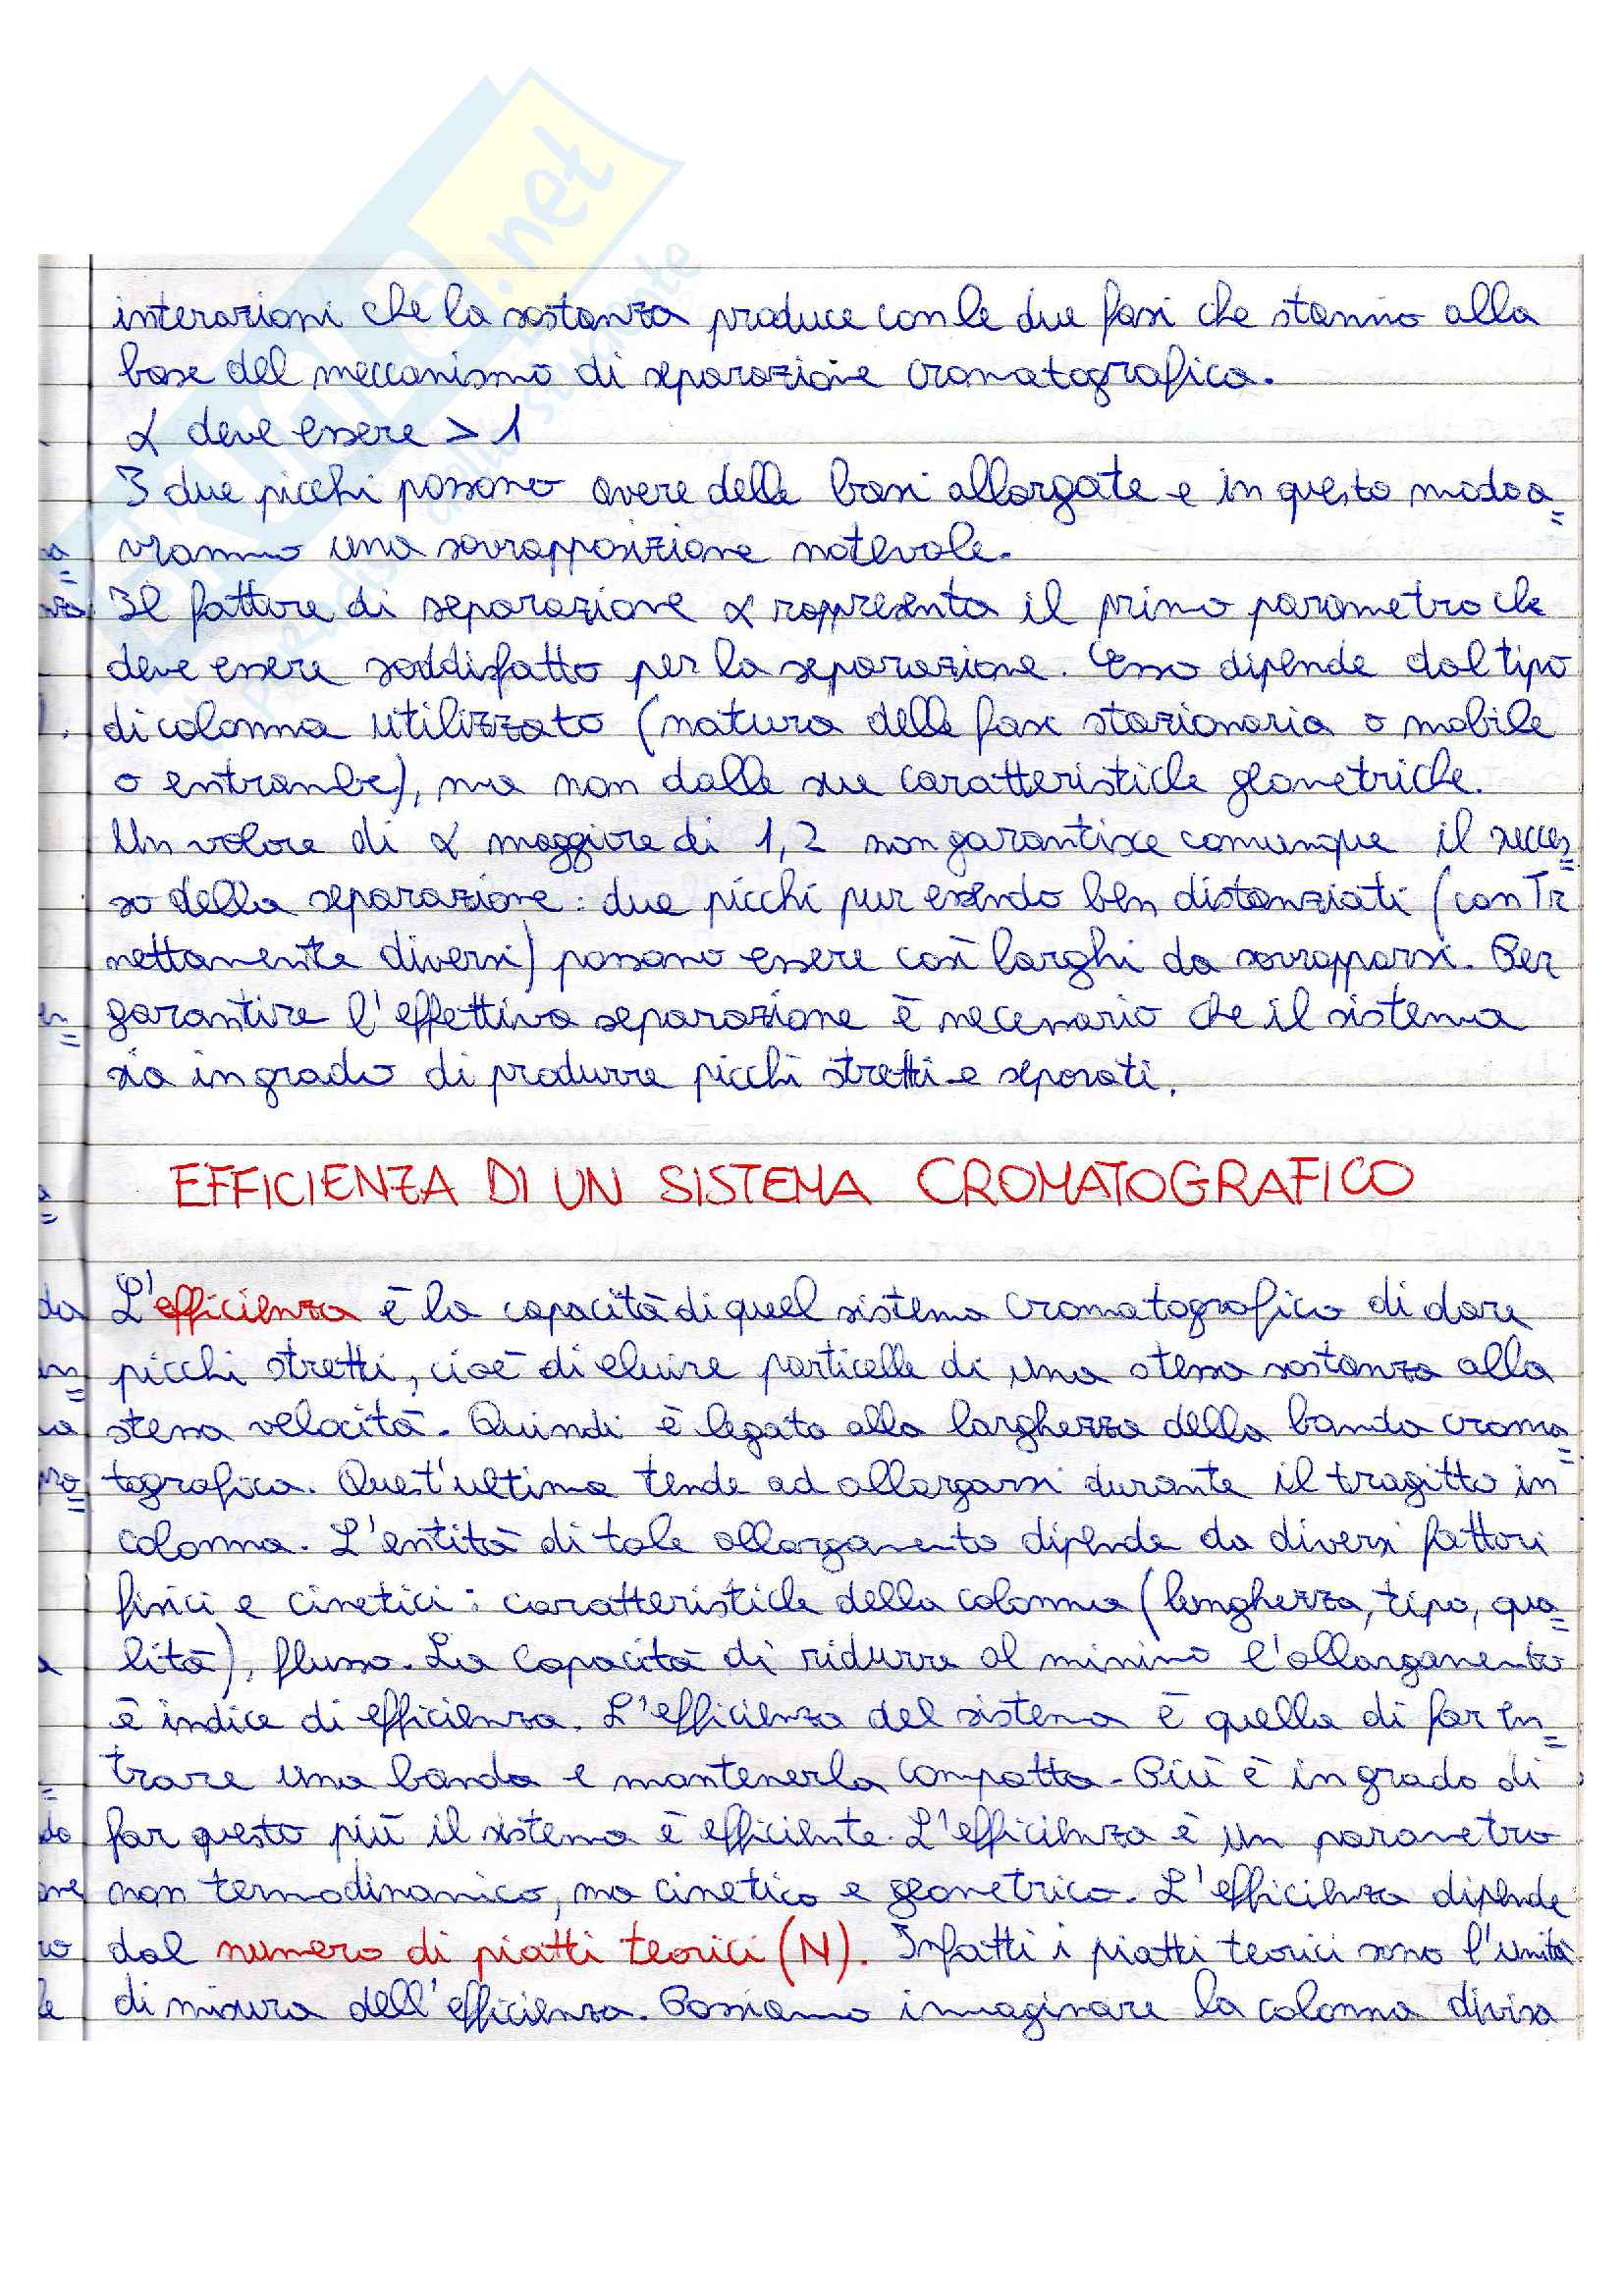 .net
interazioni che la sostanza produce con le due fasi che stanno alla
base del meccanismo di separazione cromatografica.
α deve essere > 1
I due picchi possono avere delle basi allargate e in questo modo a=
vranno una sovrapposizione notevole.
Il fattore di separazione α rappresenta il primo parametro che
deve essere soddisfatto per la separazione. Esso dipende dal tipo
di colonna utilizzato (natura della fase stazionaria o mobile
o entrambe), ma non dalle sue caratteristiche geometriche.
Un valore di α maggiore di 1,2 non garantisce comunque il succes=
so della separazione: due picchi pur essendo ben distanziati (con Tr
nettamente diversi) possono essere così larghi da sovrapporsi. Per
garantire l'effettiva separazione è necessario che il sistema
sia in grado di produrre picchi stretti e separati.
EFFICIENZA DI UN SISTEMA CROMATOGRAFICO
L'efficienza è la capacità di quel sistema cromatografico di dare
picchi stretti, cioè di eluire particelle di una stessa sostanza alla
stessa velocità. Quindi è legata alla larghezza della banda croma=
tografica. Quest'ultima tende ad allargarsi durante il tragitto in
colonna. L'entità di tale allargamento dipende da diversi fattori
fisici e cinetici: caratteristiche della colonna (lunghezza, tipo, qua=
lità), flusso. La capacità di ridurre al minimo l'allargamento
è indice di efficienza. L'efficienza del sistema è quella di far en=
trare una banda e mantenerla compatta. Più è in grado di
far questo più il sistema è efficiente. L'efficienza è un parametro
non termodinamico, ma cinetico e geometrico. L'efficienza dipende
dal numero di piatti teorici (N). Infatti i piatti teorici sono l'unità
di misura dell'efficienza. Possiamo immaginare la colonna divisa